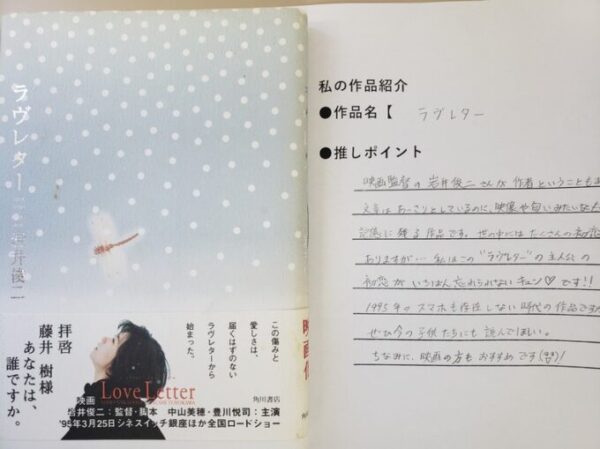 ラヴレター
岩井俊二
この傷みと
愛しさは、
届くはずのない
ラヴレターから
始まった。
拝啓
藤井 樹様
あなたは、
誰ですか。
映画
Love Letter
角川書店
岩井俊二:監督・脚本 中山美穂・豊川悦司:主演
'95年3月25日シネスイッチ銀座ほか全国ロードショー
映画化
私の作品紹介
●作品名【 ラヴレター
●推しポイント
映画監督の岩井俊二さんが作者ということもあ
文章はあっさりとしているのに、映像や匂いみたいな
記憶に残る作品です。世の中にはたくさんの初恋
ありますが… 私はこの"ラヴレター"の主人公の
初恋がいちばん忘れられないキュン♡です!!
1995年のスマホも存在しない時代の作品ですが
ぜひ今の子供たちにも読んでほしい。
ちなみに、映画の方もおすすめです!